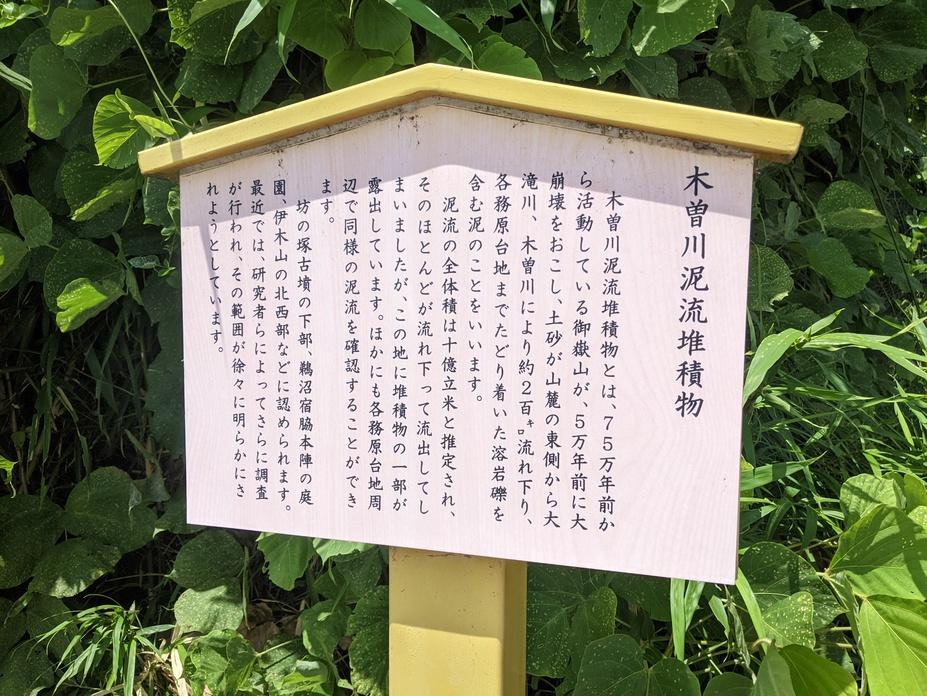 木曽川泥流堆積物
木曽川泥流堆積物とは、75万年前か
ら活動している御嶽山が、5万年前に大
崩壊をおこし、土砂が山麓の東側から大
滝川、木曽川により約2百㌔流れ下り、
各務原台地までたどり着いた溶岩礫を
含む泥のことをいいます。
泥流の全体積は十億立米と推定され、
そのほとんどが流れ下って流出してし
まいましたが、この地に堆積物の一部が
露出しています。ほかにも各務原台地周
辺で同様の泥流を確認することができ
ます。
坊の塚古墳の下部、鵜沼宿脇本陣の庭
園、伊木山の北西部などに認められます。
最近では、研究者らによってさらに調査
が行われ、その範囲が徐々に明らかにさ
れようとしています。